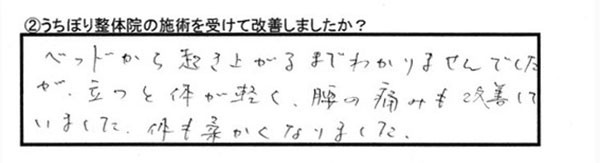 ②うちぼり整体院の施術を受けて改善しましたか？
ベッドから起き上がるまでわかりませんでした
が、立つと体が軽く、腰の痛みも改善して
いました。体も柔かくなりました。